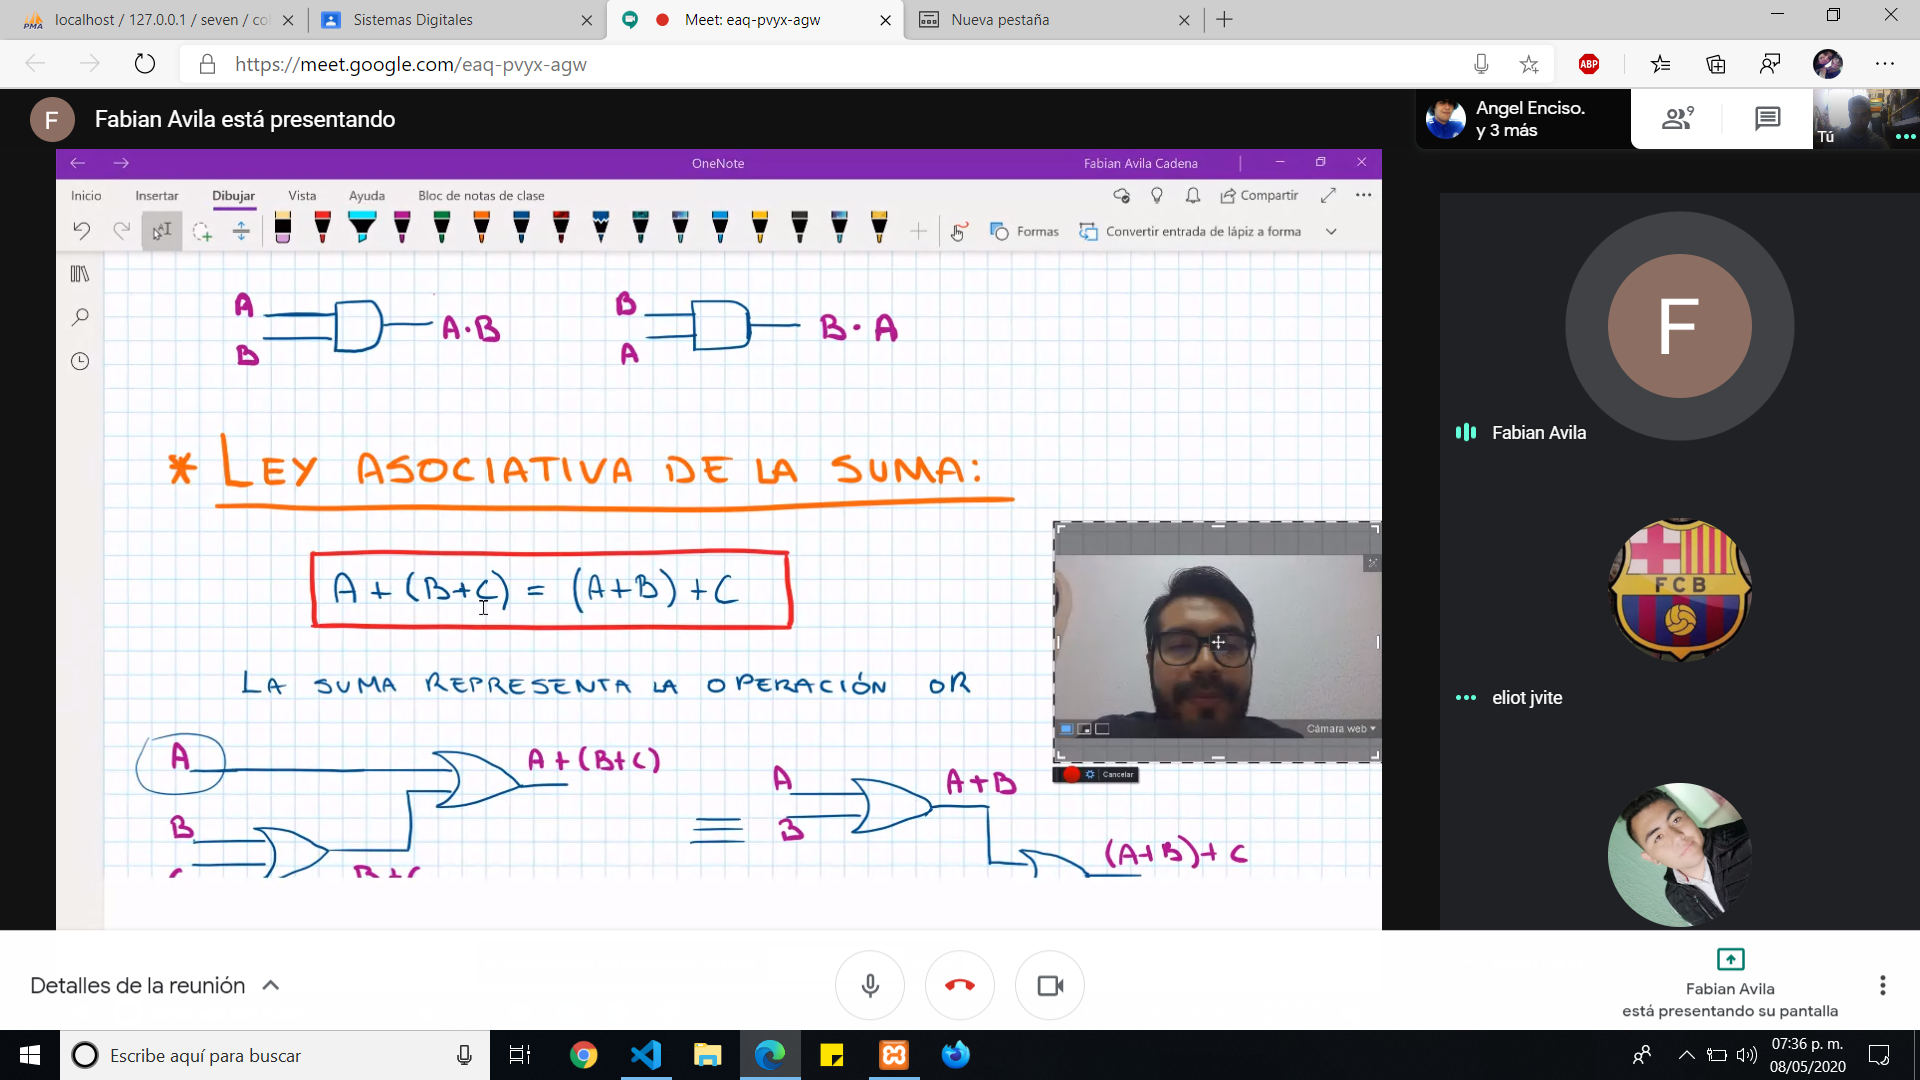 localhost / 127.0.0.1 / seven / co
Sistemas Digitales
Meet: eaq-pvyx-agw
Nueva pestaña
https://meet.google.com/eaq-pvyx-agw
ABP
F
Fabian Avila está presentando
Angel Enciso.
y 3 más
9
Tú
OneNote
Fabian Avila Cadena
Inicio
Insertar
Dibujar
Vista
Ayuda
Bloc de notas de clase
Compartir
Formas
Convertir entrada de lápiz a forma
A
B
A·B
B
A
B·A
* LEY ASOCIATIVA DE LA SUMA:
A + (B+C) = (A+B) + C
LA SUMA REPRESENTA LA OPERACIÓN OR
A
A + (B+C)
B
C
B+C
A
B
A+B
(A+B)+C
Cámara web
Cancelar
F
Fabian Avila
FCB
eliot jvite
Detalles de la reunión
Fabian Avila
está presentando su pantalla
Escribe aquí para buscar
07:36 p. m.
08/05/2020